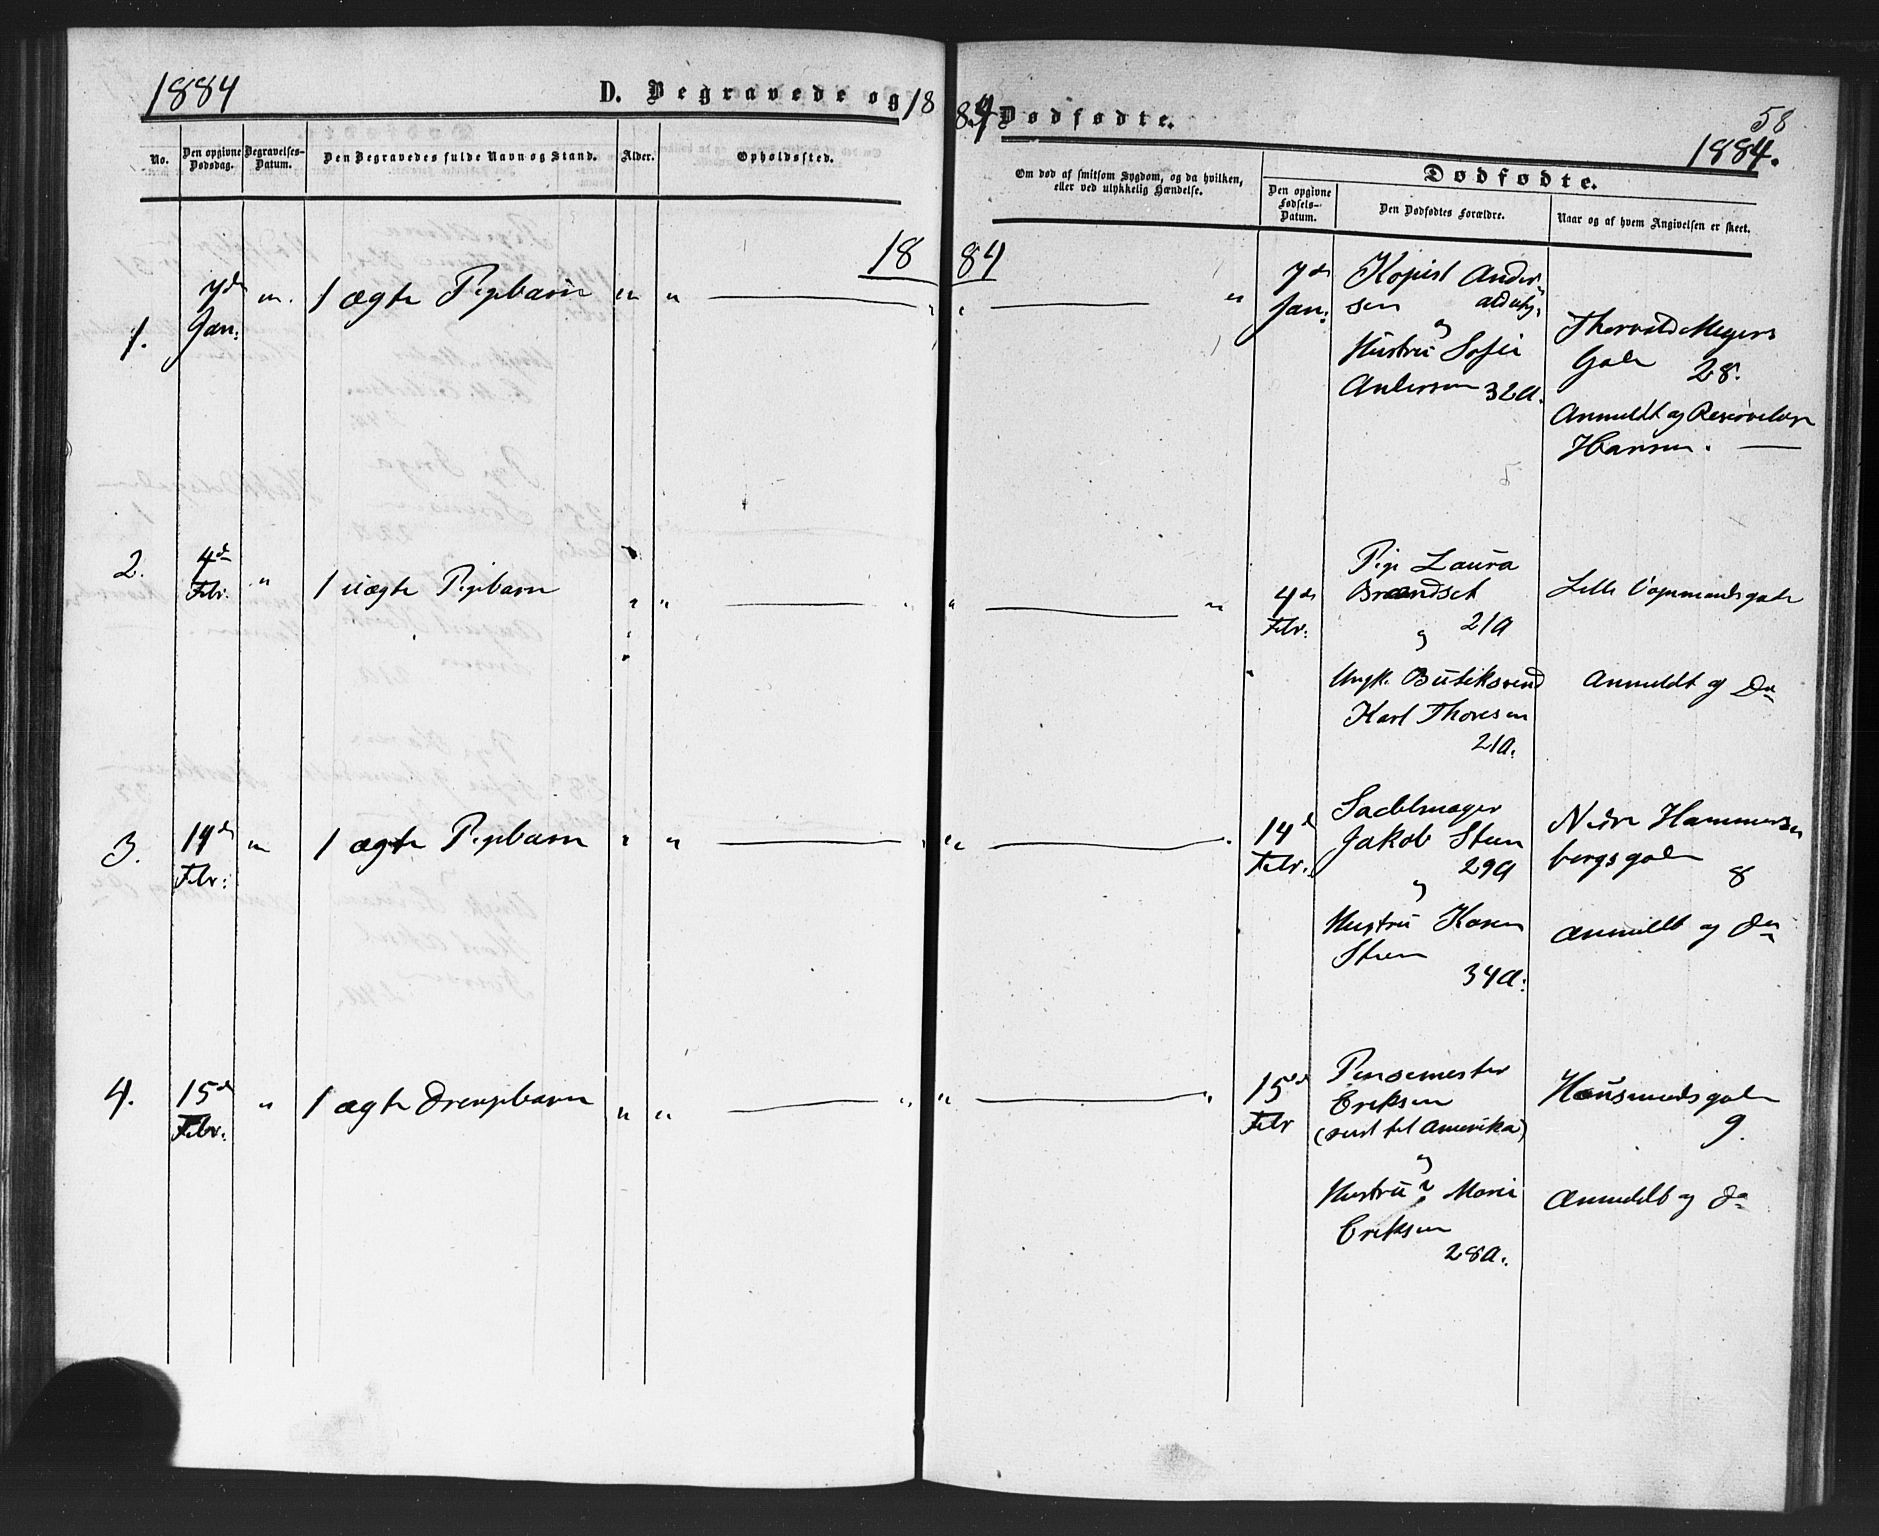 1884
D. Begravede og 18
84 Dødfødte.
58
1884.
No.
Den opgivne Dødsdag.
Begravelses-Datum.
Den Begravedes fulde Navn og Stand.
Alder.
Opholdssted.
Om død af smitsom Sygdom, og da hvilken,
eller ved ulykkelig Hændelse.
Dødfødte.
Den opgivne
Fødsels-
Datum.
Den Dødfødtes Forældre.
Naar og af hvem Angivelsen er skeet.
18 84
1.
7de
Jan:
"
1 ægte Pigebarn
" "
" "
7de
Jan:
Kopist Ander-
sen
og
Hustru Sofie
Andersen 32 A.
Thorvald Meyers
Gade 28.
Anmeldt af
Hansen.
2.
4de
Febr:
"
1 uægte Pigebarn
" " "
" "
4de
Febr:
Pige Laura
Brændset
21 A
og
Ungk. Butiksvend
Karl Thoresen
21 A.
Lille Vognmandsgade
Anmeldt af Do
3.
14de
Febr:
"
1 ægte Pigebarn
" " "
" "
14de
Febr.
Sadelmager
Jakob Steen
29 A
og
Hustru Karen
Steen
34 A.
Nedre Hammers-
bergsgade
8
Anmeldt af Do
4.
15de
Febr:
"
1 ægte Drengebarn
" " "
" "
15de
Febr
Eriksen
(reist til Amerika)
og
Hustru Marie
Eriksen
28 A.
Hausmandsgade
9.
Anmeldt af Do